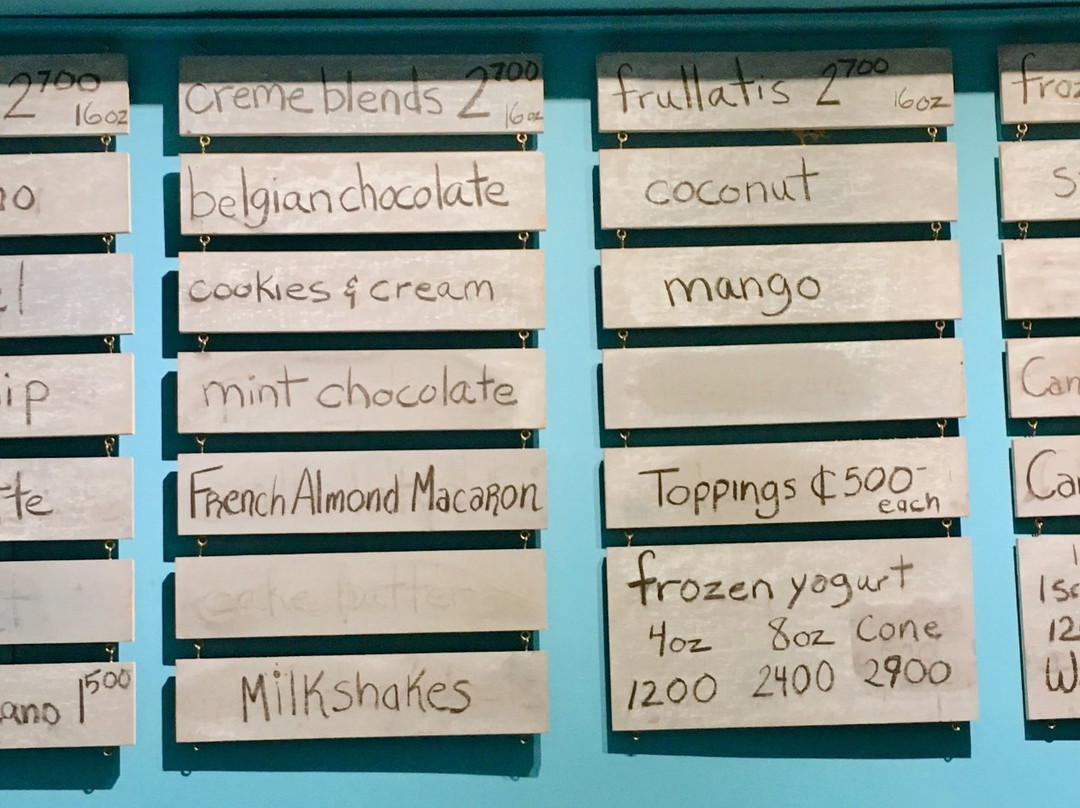 2700
16oz
ano 1500
creme blends 2700
16oz
belgian chocolate
cookies & cream
mint chocolate
French Almond Macaron
cake butter
Milkshakes
frullatis 2700
16oz
coconut
mango
Toppings ₡500-
each
frozen yogurt
4oz 8oz Cone
1200 2400 2900